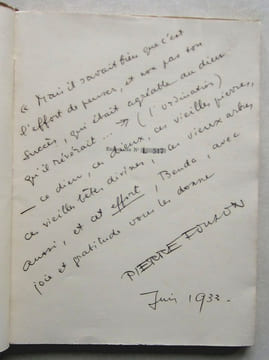 « Mais il savait bien que c'est
l'effort de penser, et non pas ton
succès, qui était agréable au dieu
qu'il révérait... → (l'ordination)
— ce dieu, ces dieux, ces vieilles pierres,
ces vieilles têtes divines, ces vieux arbres
aussi, et cet effort, Benda, avec
joie et gratitude vous les donne
PIERRE
Juin 1933.